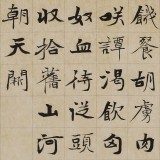 饑餐胡虜肉
咲譚渴飲匈
奴血待従頭
収拾舊山河
朝天闕